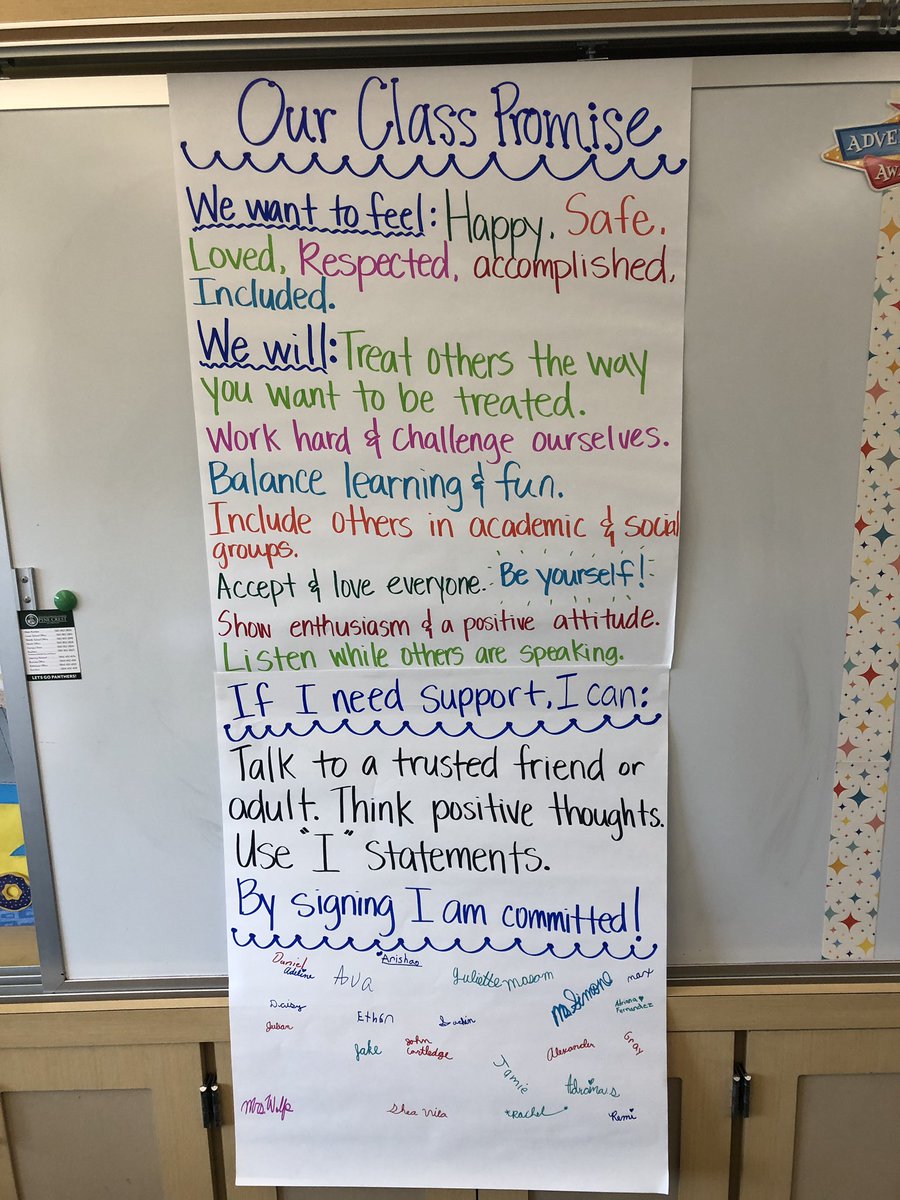 Our Class Promise
We want to feel: Happy, Safe,
Loved, Respected, accomplished,
Included.
We will: Treat others the way
you want to be treated.
Work hard & challenge ourselves.
Balance learning & fun.
Include others in academic & social
groups.
Accept & love everyone. Be yourself!
Show enthusiasm & a positive attitude.
Listen while others are speaking.
If I need support, I can:
Talk to a trusted friend or
adult. Think positive thoughts.
Use "I" statements.
By signing I am committed!
Daniel
Adeline
Ava
Juliette
Ms. Simone
max
Adriana
Fernandez
Daisy
Ethan
Julian
Jake
John
Alexander
Gray
Jamie
Adriana S
Mrs. Wolf
Shea Vila
Rachel
Remi
ADVE
AW
PINE CREST
LET'S GO PANTHERS!